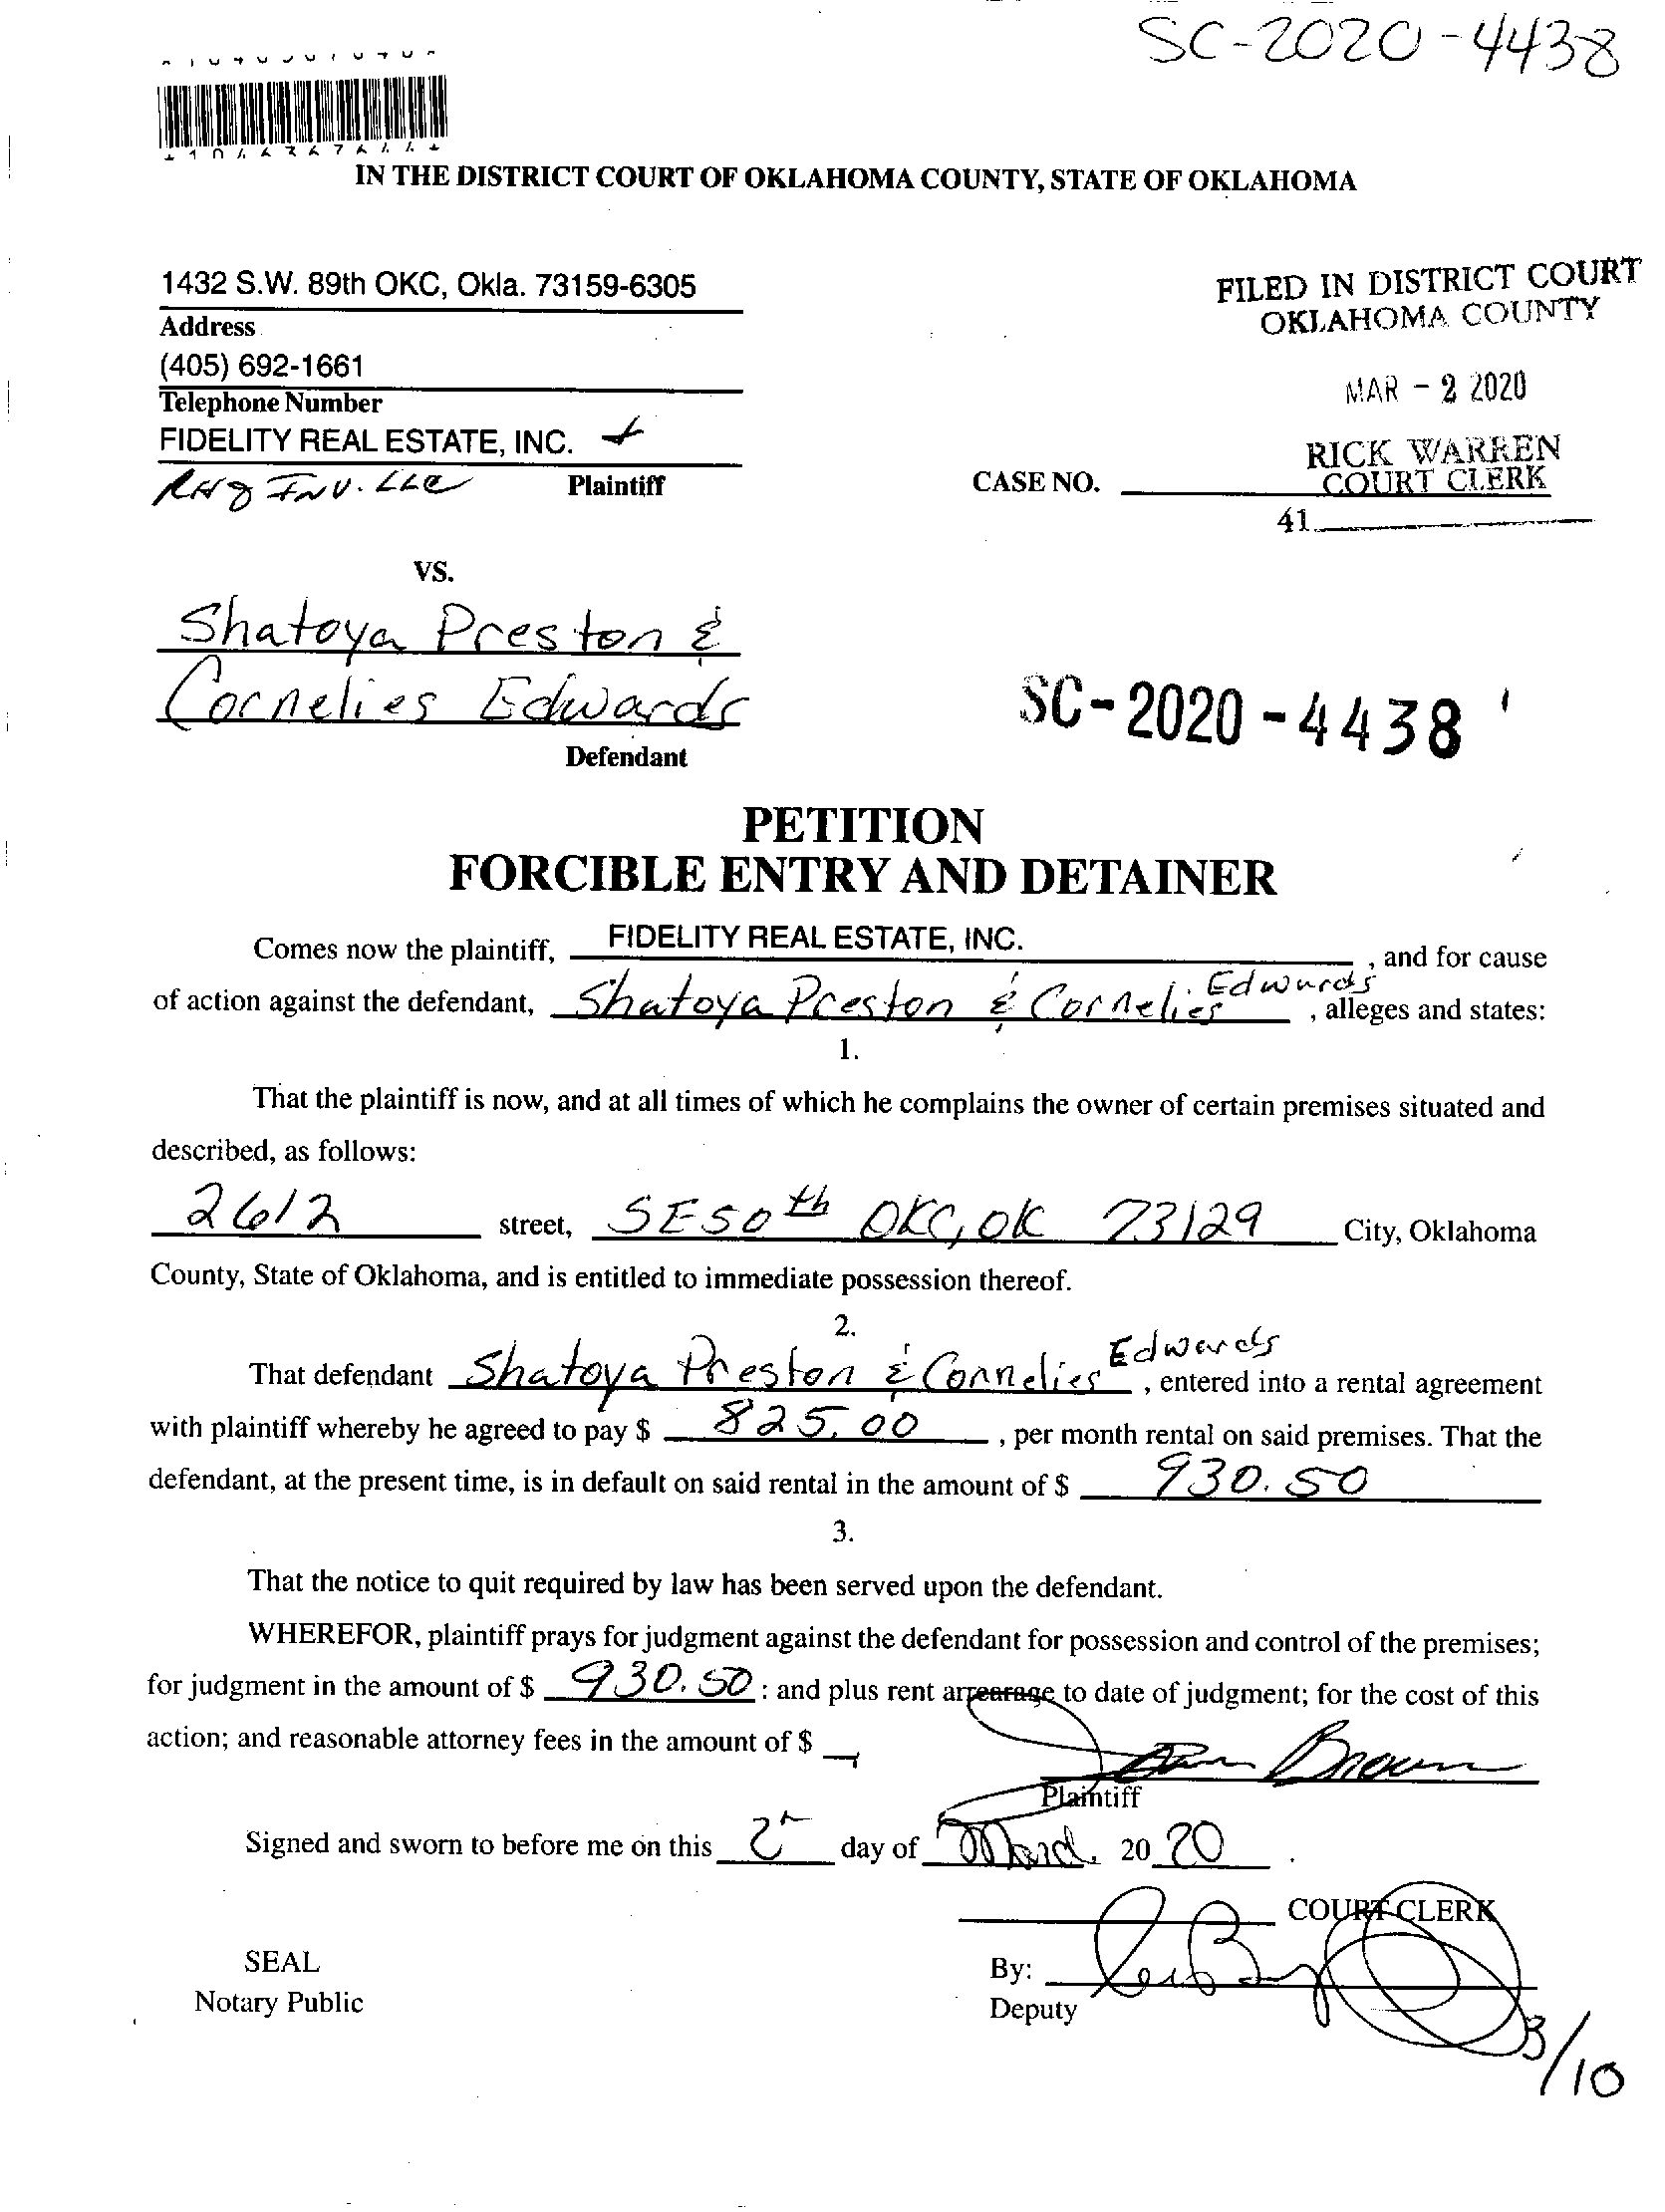 SC-2020-4438
IN THE DISTRICT COURT OF OKLAHOMA COUNTY, STATE OF OKLAHOMA
1432 S.W. 89th OKC, Okla. 73159-6305
Address
(405) 692-1661
Telephone Number
FIDELITY REAL ESTATE, INC. +
INV. LLC Plaintiff
FILED IN DISTRICT COURT
OKLAHOMA COUNTY
MAR - 2 2020
RICK WARREN
COURT CLERK
CASE NO.
41
VS.
Shatoya Preston &
Cornelies Edwards
Defendant
SC-2020-4438
PETITION
FORCIBLE ENTRY AND DETAINER
Comes now the plaintiff, FIDELITY REAL ESTATE, INC. , and for cause
of action against the defendant, Shatoya Preston & Cornelies Edwards , alleges and states:
1.
That the plaintiff is now, and at all times of which he complains the owner of certain premises situated and
described, as follows:
2612 street, SE 50th OKC, OK 73129 City, Oklahoma
County, State of Oklahoma, and is entitled to immediate possession thereof.
2.
That defendant Shatoya Preston & Cornelies Edwards , entered into a rental agreement
with plaintiff whereby he agreed to pay $ 825.00 , per month rental on said premises. That the
defendant, at the present time, is in default on said rental in the amount of $ 930.50
3.
That the notice to quit required by law has been served upon the defendant.
WHEREFOR, plaintiff prays for judgment against the defendant for possession and control of the premises;
for judgment in the amount of $ 930.50 : and plus rent arrearage to date of judgment; for the cost of this
action; and reasonable attorney fees in the amount of $
Brown
Plaintiff
Signed and sworn to before me on this 2 day of March, 2020 .
COURT CLERK
SEAL
By:
Notary Public
Deputy
3/10